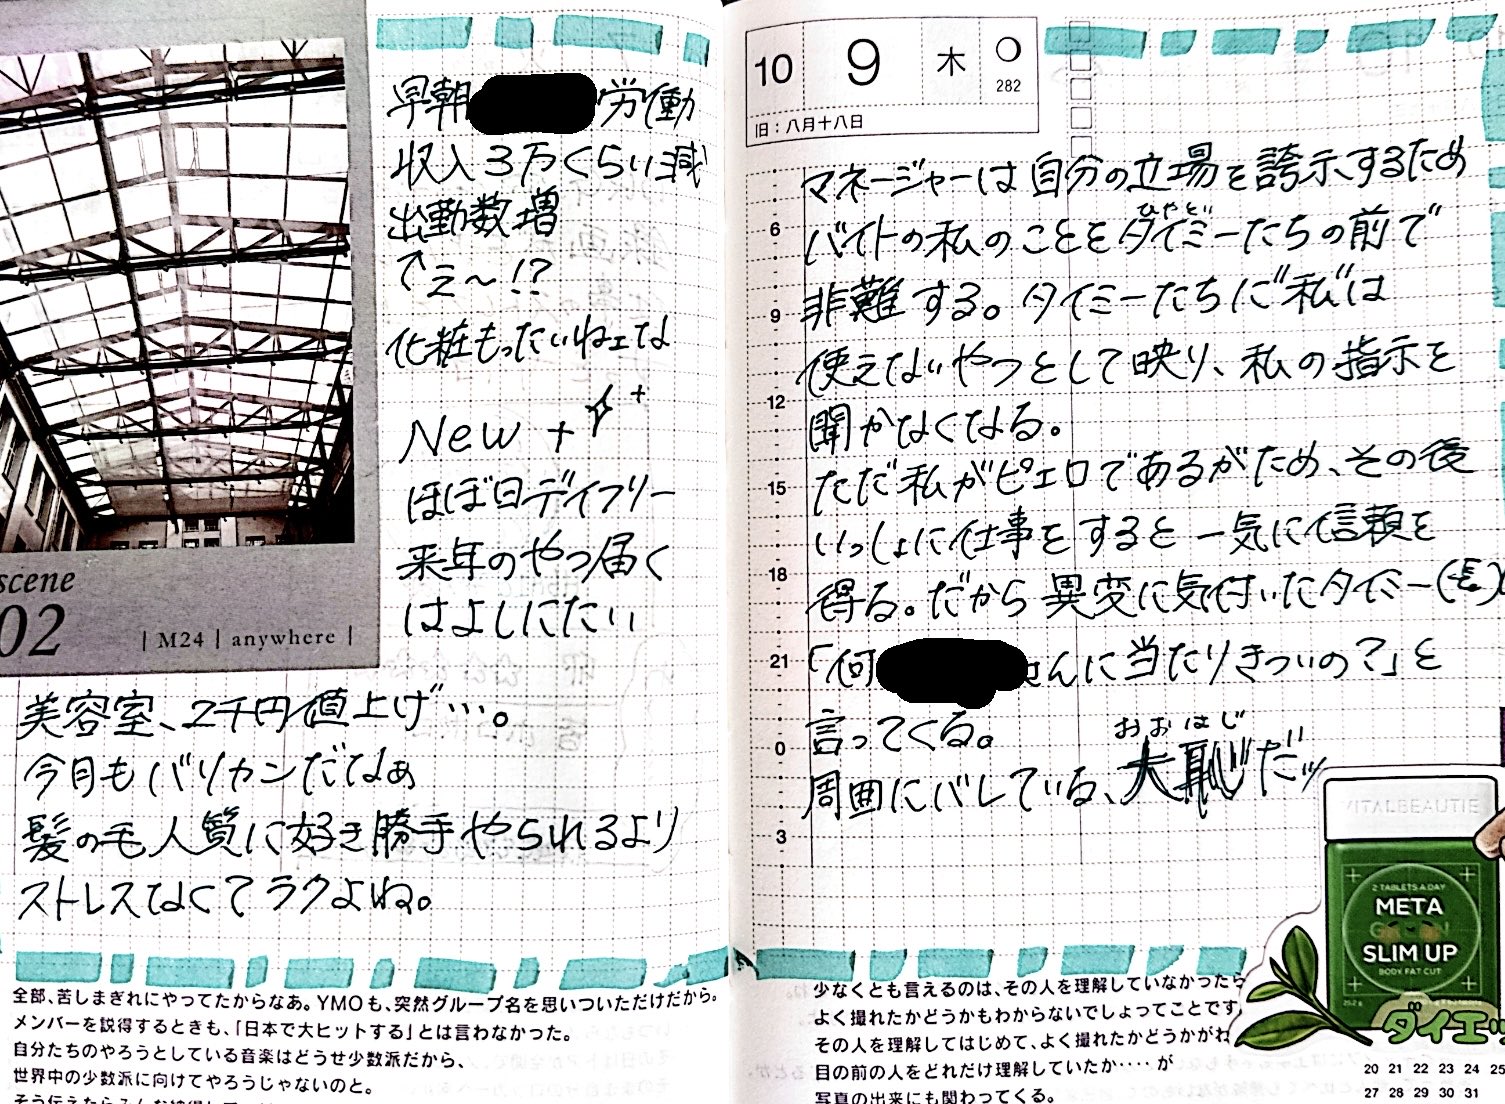 早朝 労働
収入3万くらい減
出勤数増
え〜!?
化粧もったいねェな
New +
ほぼ日デイフリー
来年のやつ届く
はよしにたい
scene
02
| M24 | anywhere |
美容室、2千円値上げ…。
今月もバリカンだなぁ
髪の毛人質に好き勝手やられるより
ストレスなくてラクよね。
全部、苦しまぎれにやってたからなあ。YMOも、突然グループ名を思いついただけだから。
メンバーを説得するときも、「日本で大ヒットする」とは言わなかった。
自分たちのやろうとしている音楽はどうせ少数派だから、
世界中の少数派に向けてやろうじゃないのと。
10 9 木
282
旧：八月十八日
マネージャーは自分の立場を誇示するため
ひやとい
バイトの私のことをタイミーたちの前で
非難する。タイミーたちに"私"は
使えないやつとして映り、私の指示を
聞かなくなる。
ただ私がピエロであるがため、その後
いっしょに仕事をすると一気に信頼を
得る。だから異変に気付いたタイミー(長)
「何 さんに当たりきついの?」と
言ってくる。
おおはじ
周囲にバレている、大恥だッ
6
9
12
15
18
21
0
3
VITALBEAUTIE
2 TABLETS A DAY
META
GREEN
SLIM UP
BODY FAT CUT
ダイエッ
少なくとも言えるのは、その人を理解していなかったら
よく撮れたかどうかもわからないでしょってことです
その人を理解してはじめて、よく撮れたかどうかがわ
目の前の人をどれだけ理解していたか‥‥が
写真の出来にも関わってくる。
20 21 22 23 24 25
27 28 29 30 31